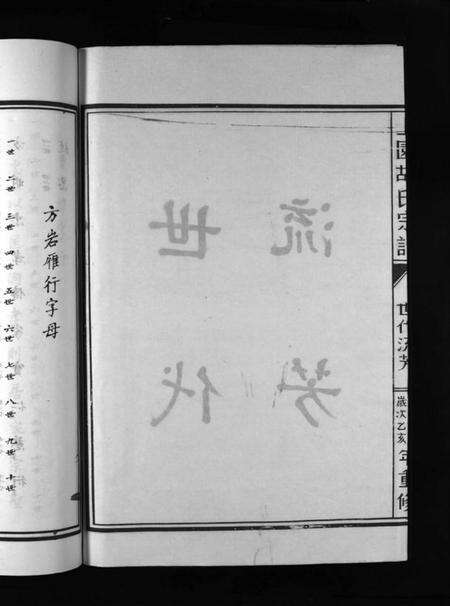 園胡氏宗譜
世代流芳
歲次乙亥年重修
世代
流芳
方岩雁行字母
一世 二世 三世 四世 五世 六世 七世 八世 九世 十世